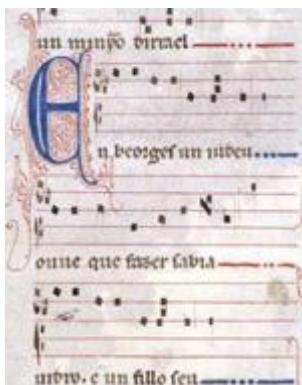 un minỹo dirrael
En beorges un iudeu
ouue que fazer sabia
uidro. e un fillo seu